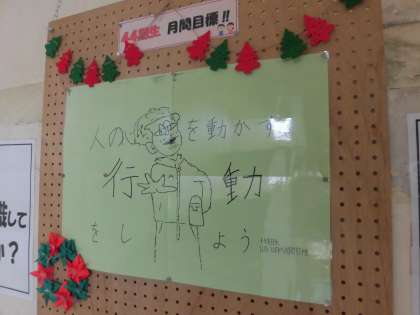 44期生 月間目標!!
人の心を動かす
行動
をしよう
識して
か?